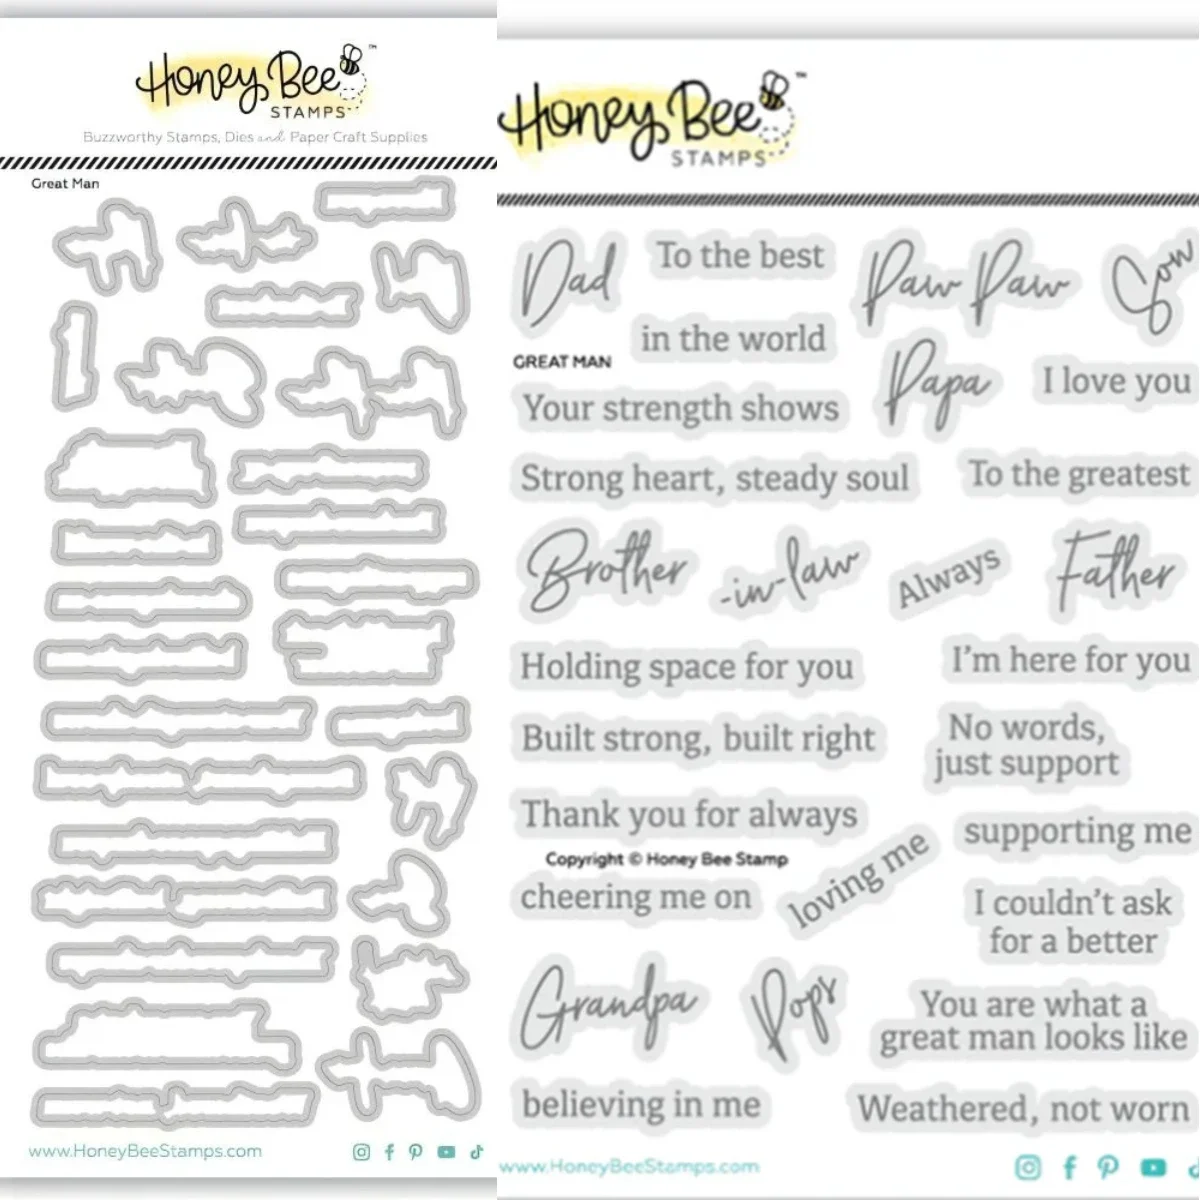 Honey Bee
STAMPS
Buzzworthy Stamps, Dies and Paper Craft Supplies
Great Man
www.HoneyBeeStamps.com
Honey Bee
STAMPS
Dad
To the best
Paw Paw
Son
in the world
GREAT MAN
Papa
I love you
Your strength shows
Strong heart, steady soul
To the greatest
Brother
-in-law
Always
Father
Holding space for you
I'm here for you
Built strong, built right
No words,
just support
Thank you for always
supporting me
Copyright © Honey Bee Stamp
loving me
cheering me on
I couldn't ask
for a better
Grandpa
Pops
You are what a
great man looks like
believing in me
Weathered, not worn
www.HoneyBeeStamps.com